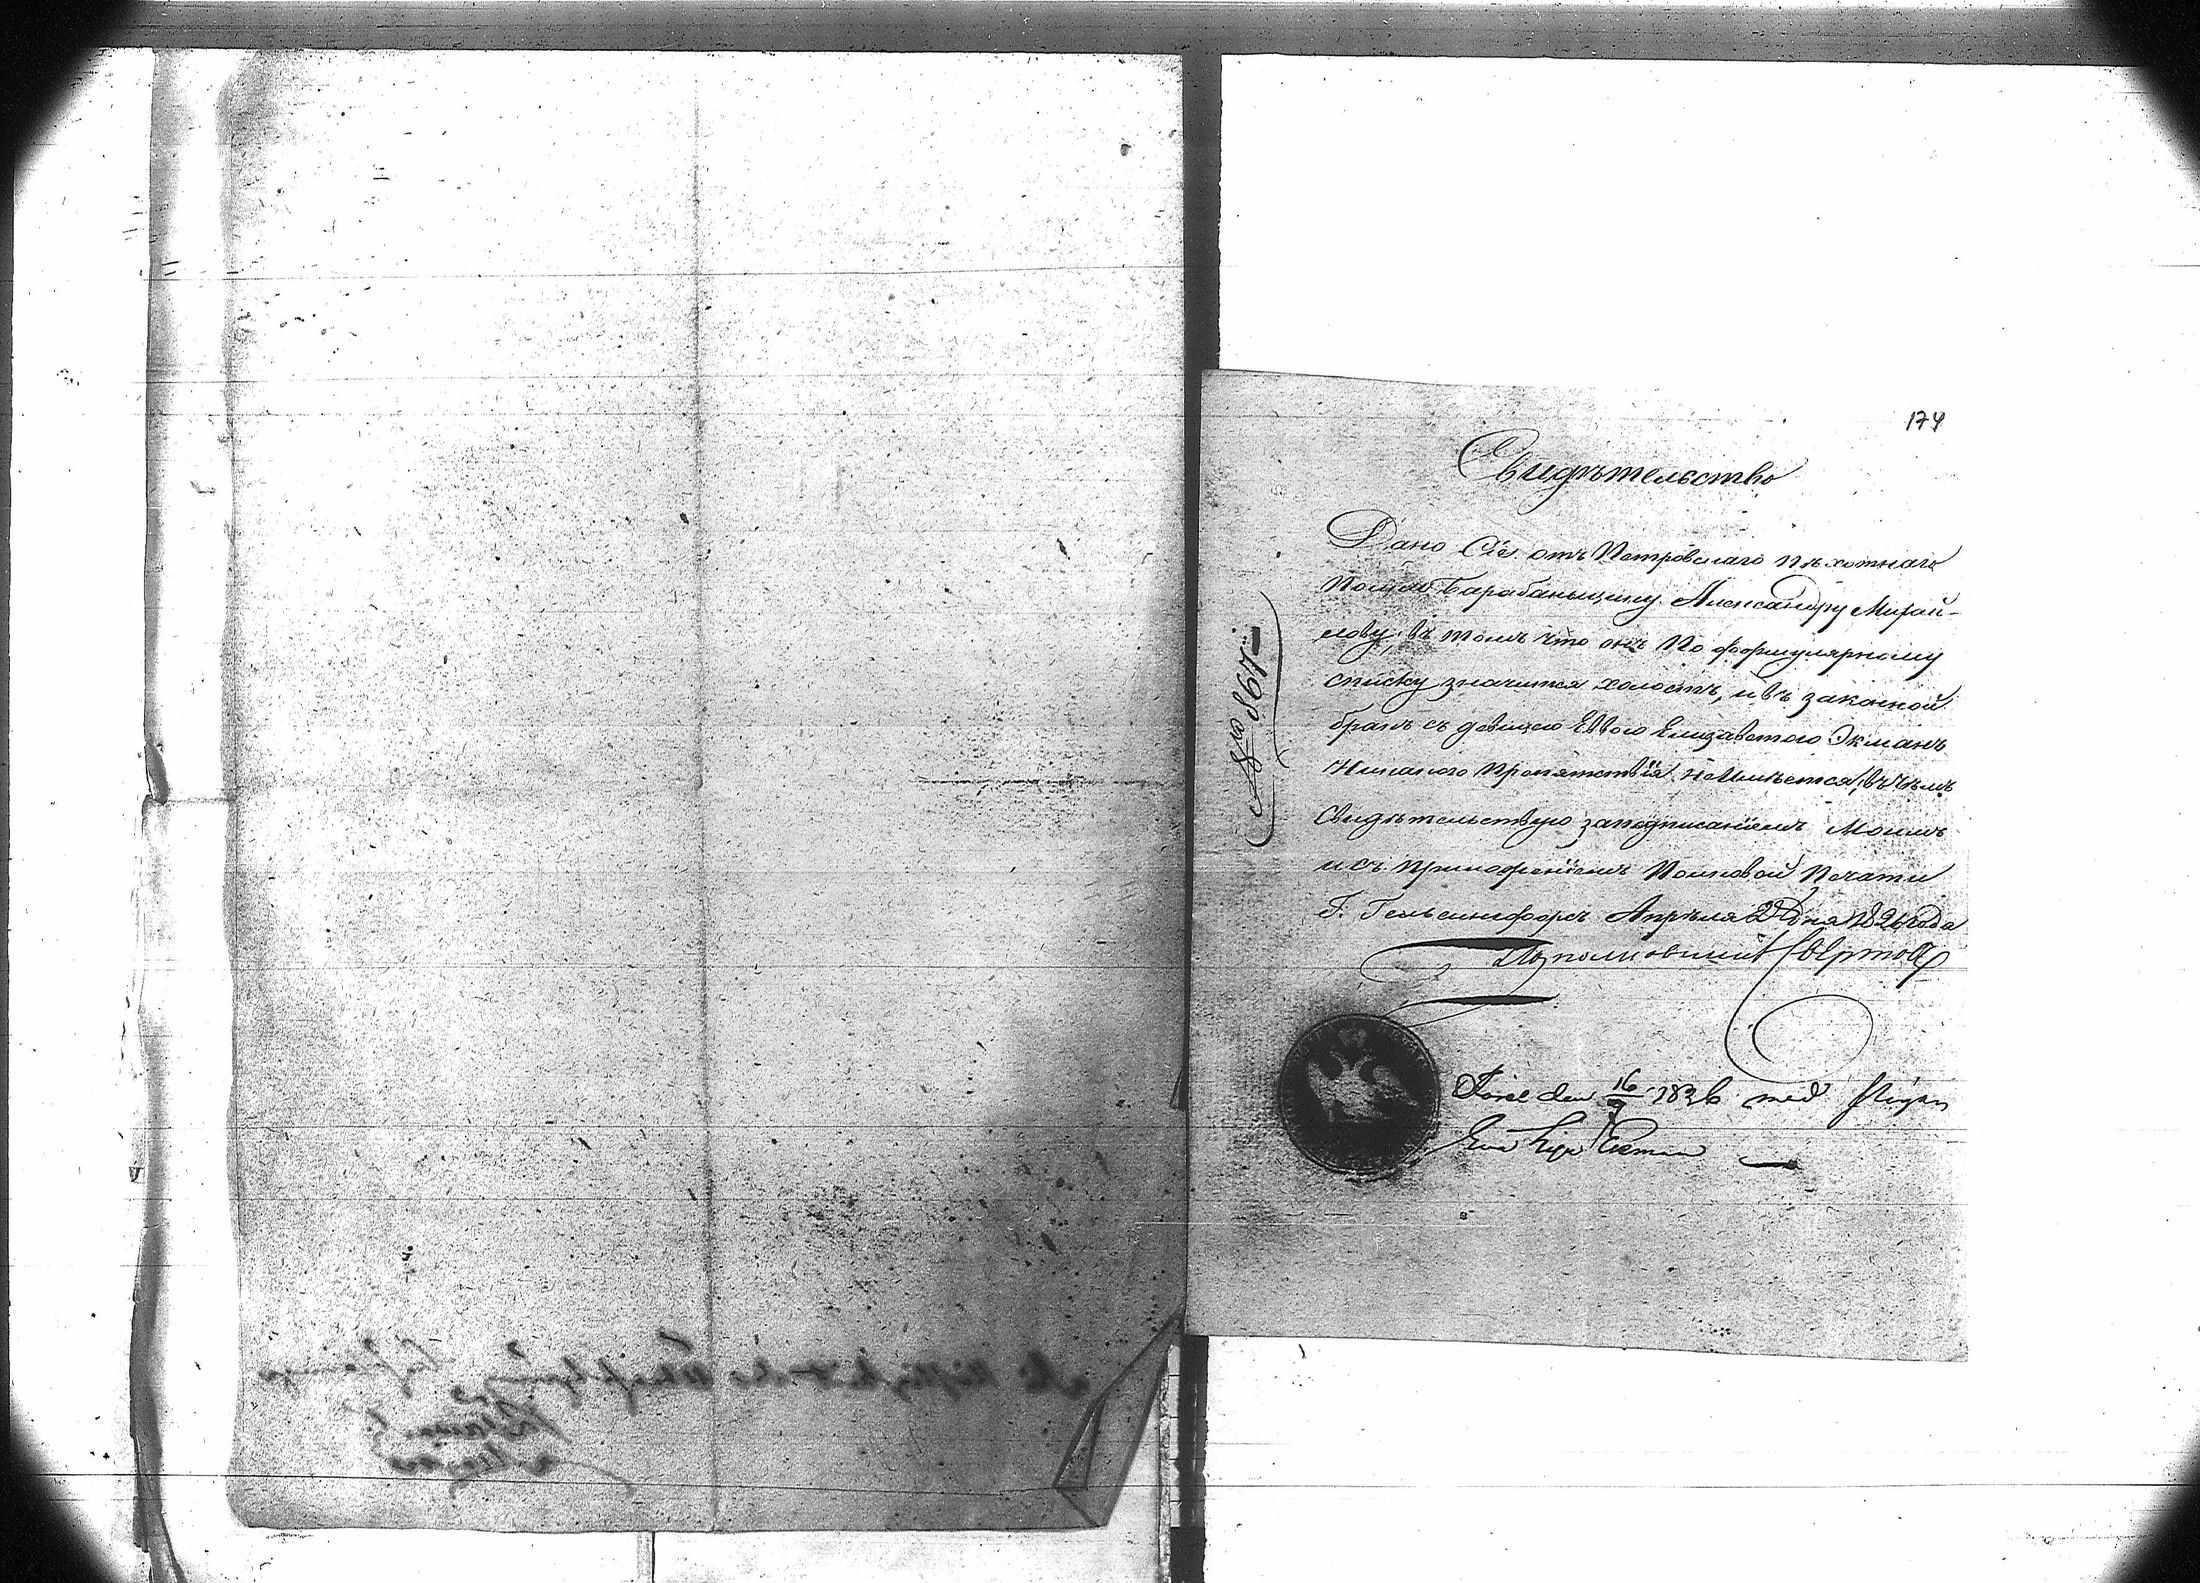 174
Свидѣтельство
Дано Сіе отъ Петровскаго пѣхотнаго
Полка Барабаньщику Александру Михай-
лову, въ томъ что онъ по формулярному
списку значится холостъ, и въ законной
бракъ съ девицею Еввою Елизаветою Экманъ
Никакого Препятствїя неимѣется; въ чемъ
Свидѣтельствую заподписанїемъ Моимъ
и съ приложенїемъ Полковой Печати
Г. Гельсингфорсъ Апрѣля 2 дня 1826 года
Подполковникъ
№ 867
den 16 1826 med Pigan
Eva Lisa Ekman